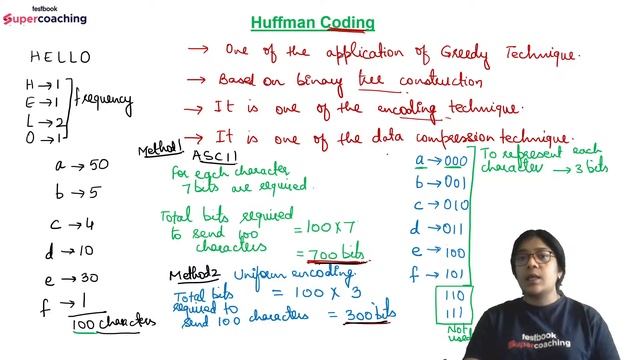 testbook
Supercoaching
Huffman Coding
HELLO
H → 1
E → 1
L → 2
O → 1
frequency
→ One of the application of Greedy Technique.
→ Based on binary tree construction
→ It is one of the encoding technique.
→ It is one of the data compression technique.
a → 50
b → 5
c → 4
d → 10
e → 30
f → 1
100 characters
Method1 ASCII
For each character
7 bits are required.
Total bits required
to send 100
characters
= 100 x 7
= 700 bits
Method2 Uniform encoding
Total bits
required to
send 100 characters
= 100 x 3
= 300 bits
a → 000
b → 001
c → 010
d → 011
e → 100
f → 101
110
111
Not
used
To represent each
character → 3 bits
testbook
Supercoaching